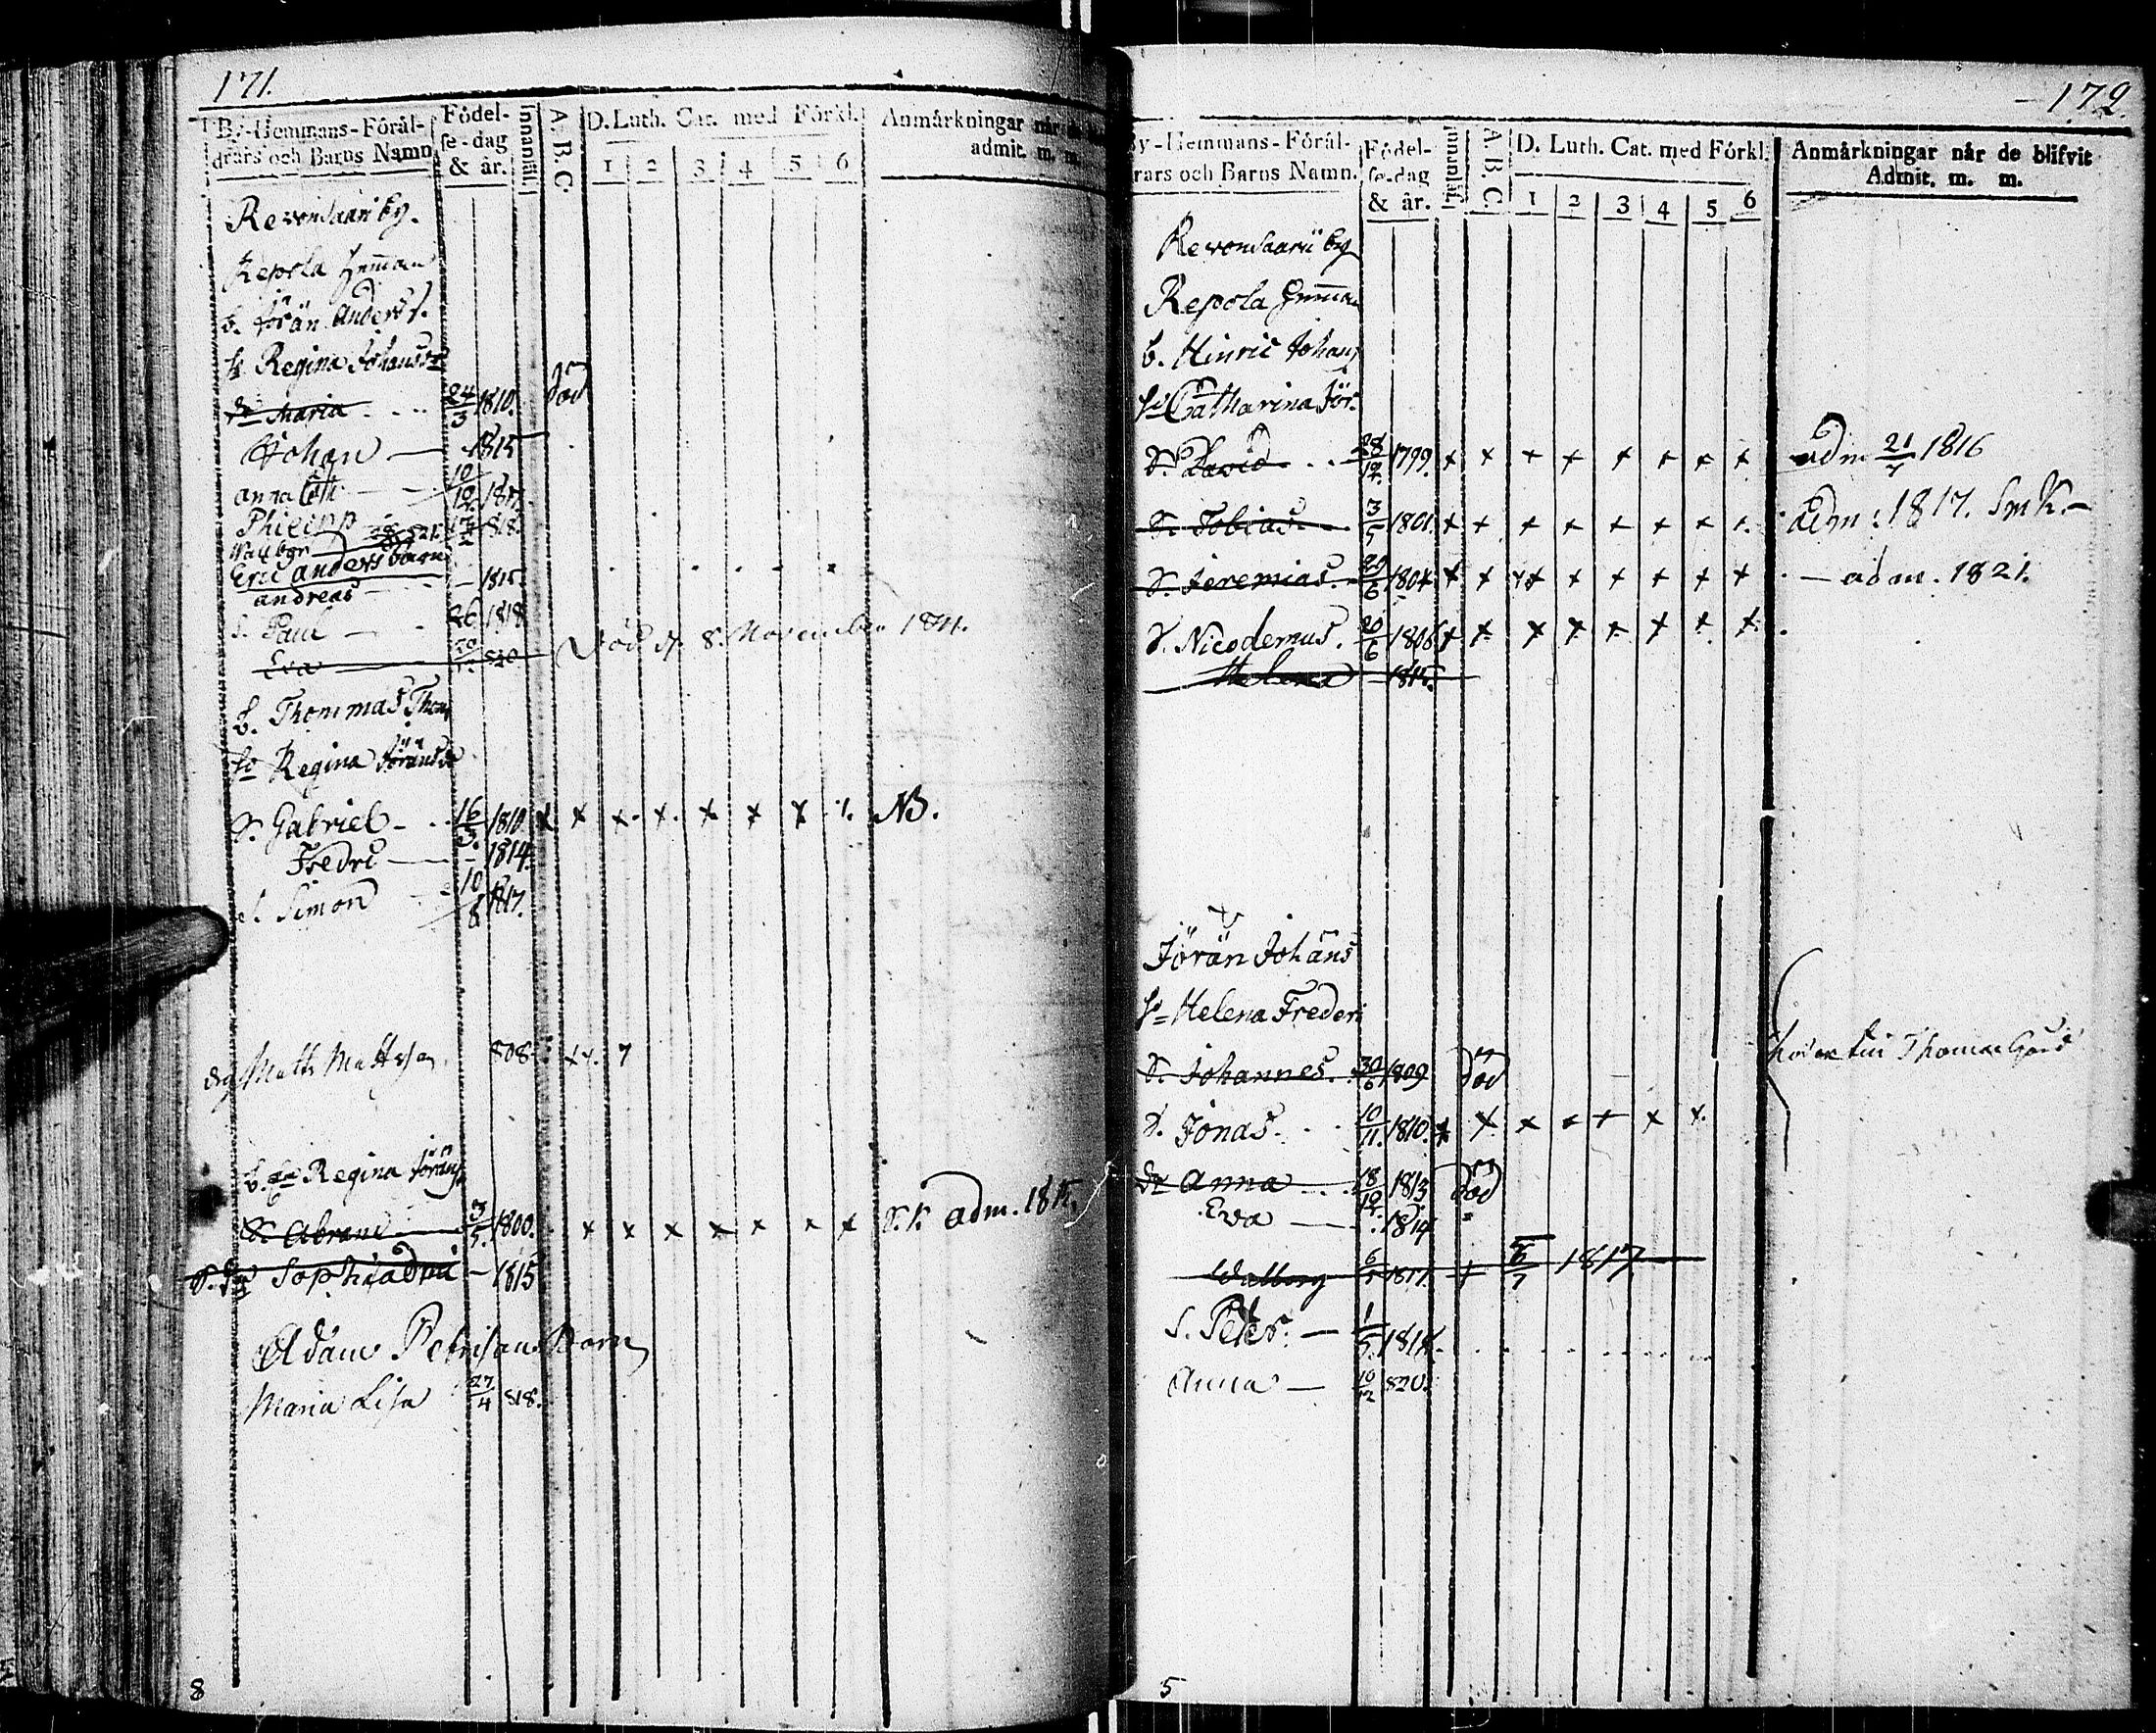 171.
By-Hemmans-Förål-
drars och Barns Namn
Födel-
se-dag
& år.
Innanläs.
A. B. C.
D. Luth. Cat. med Förkl.
1 2 3 4 5 6
Anmårkningar når
admit. m. m.
Revonsaari by.
Repola Hemman
b. Jörän Anders.
h. Regina Johansdr
dr Maria 24/3 1810. död
Johan — 1815
Anna Cath — 10/12 1817.
Philipp 17/2 1818.
Walbgr
Eric Anders barn
Andreas — 1815.
S. Paul — 26 1818
Eva 820 Död d. 8. November
b. Thommas Thom
hu Regina Jöransdr
S. Gabriel 16/3. 1810. x x x x x x x NB.
Fredric — 1814.
S. Simon 10/8 1817.
Matts Mattsson 808 7
b. Regina Jörans
S. Abram 3/5. 1800. x x x x x x x S.K. adm. 1815.
Sophia — 1815
Adam Petersons Barn
Maria Lisa 27/4 818.
8
172.
By-Hemmans-Förål-
drars och Barns Namn.
Födel-
se-dag
& år.
A. B. C.
D. Luth. Cat. med Förkl.
1 2 3 4 5 6
Anmårkningar når de blifvit
Admit. m. m.
Revonsaari by
Repola Hemman
b. Hinric Johans
hu Catharina Jör.
S. David 28/12. 1799. x x x x x x x x adm 21/7 1816
S. Tobias 3/5 1801. x x x x x x x x Adm: 1817. SmK.
S. Jeremias 29/6 1804 x x x x x x x x — adm. 1821.
S. Nicodemus. 20/6 1806 x x x x x x x x
Helena — 1815.
Jörän Johans
hu Helena Freder
S. Johannes. 30/6 1809 död
S. Jonas. 10/11. 1810. x x x x x x x
dr Anna 18/12. 1813 död
Eva — 1814
Walborg 6/5 1817. + 6/7 1817
S. Peter. — 1/5. 1818.
Anna — 10/12 820.
Thomas
5